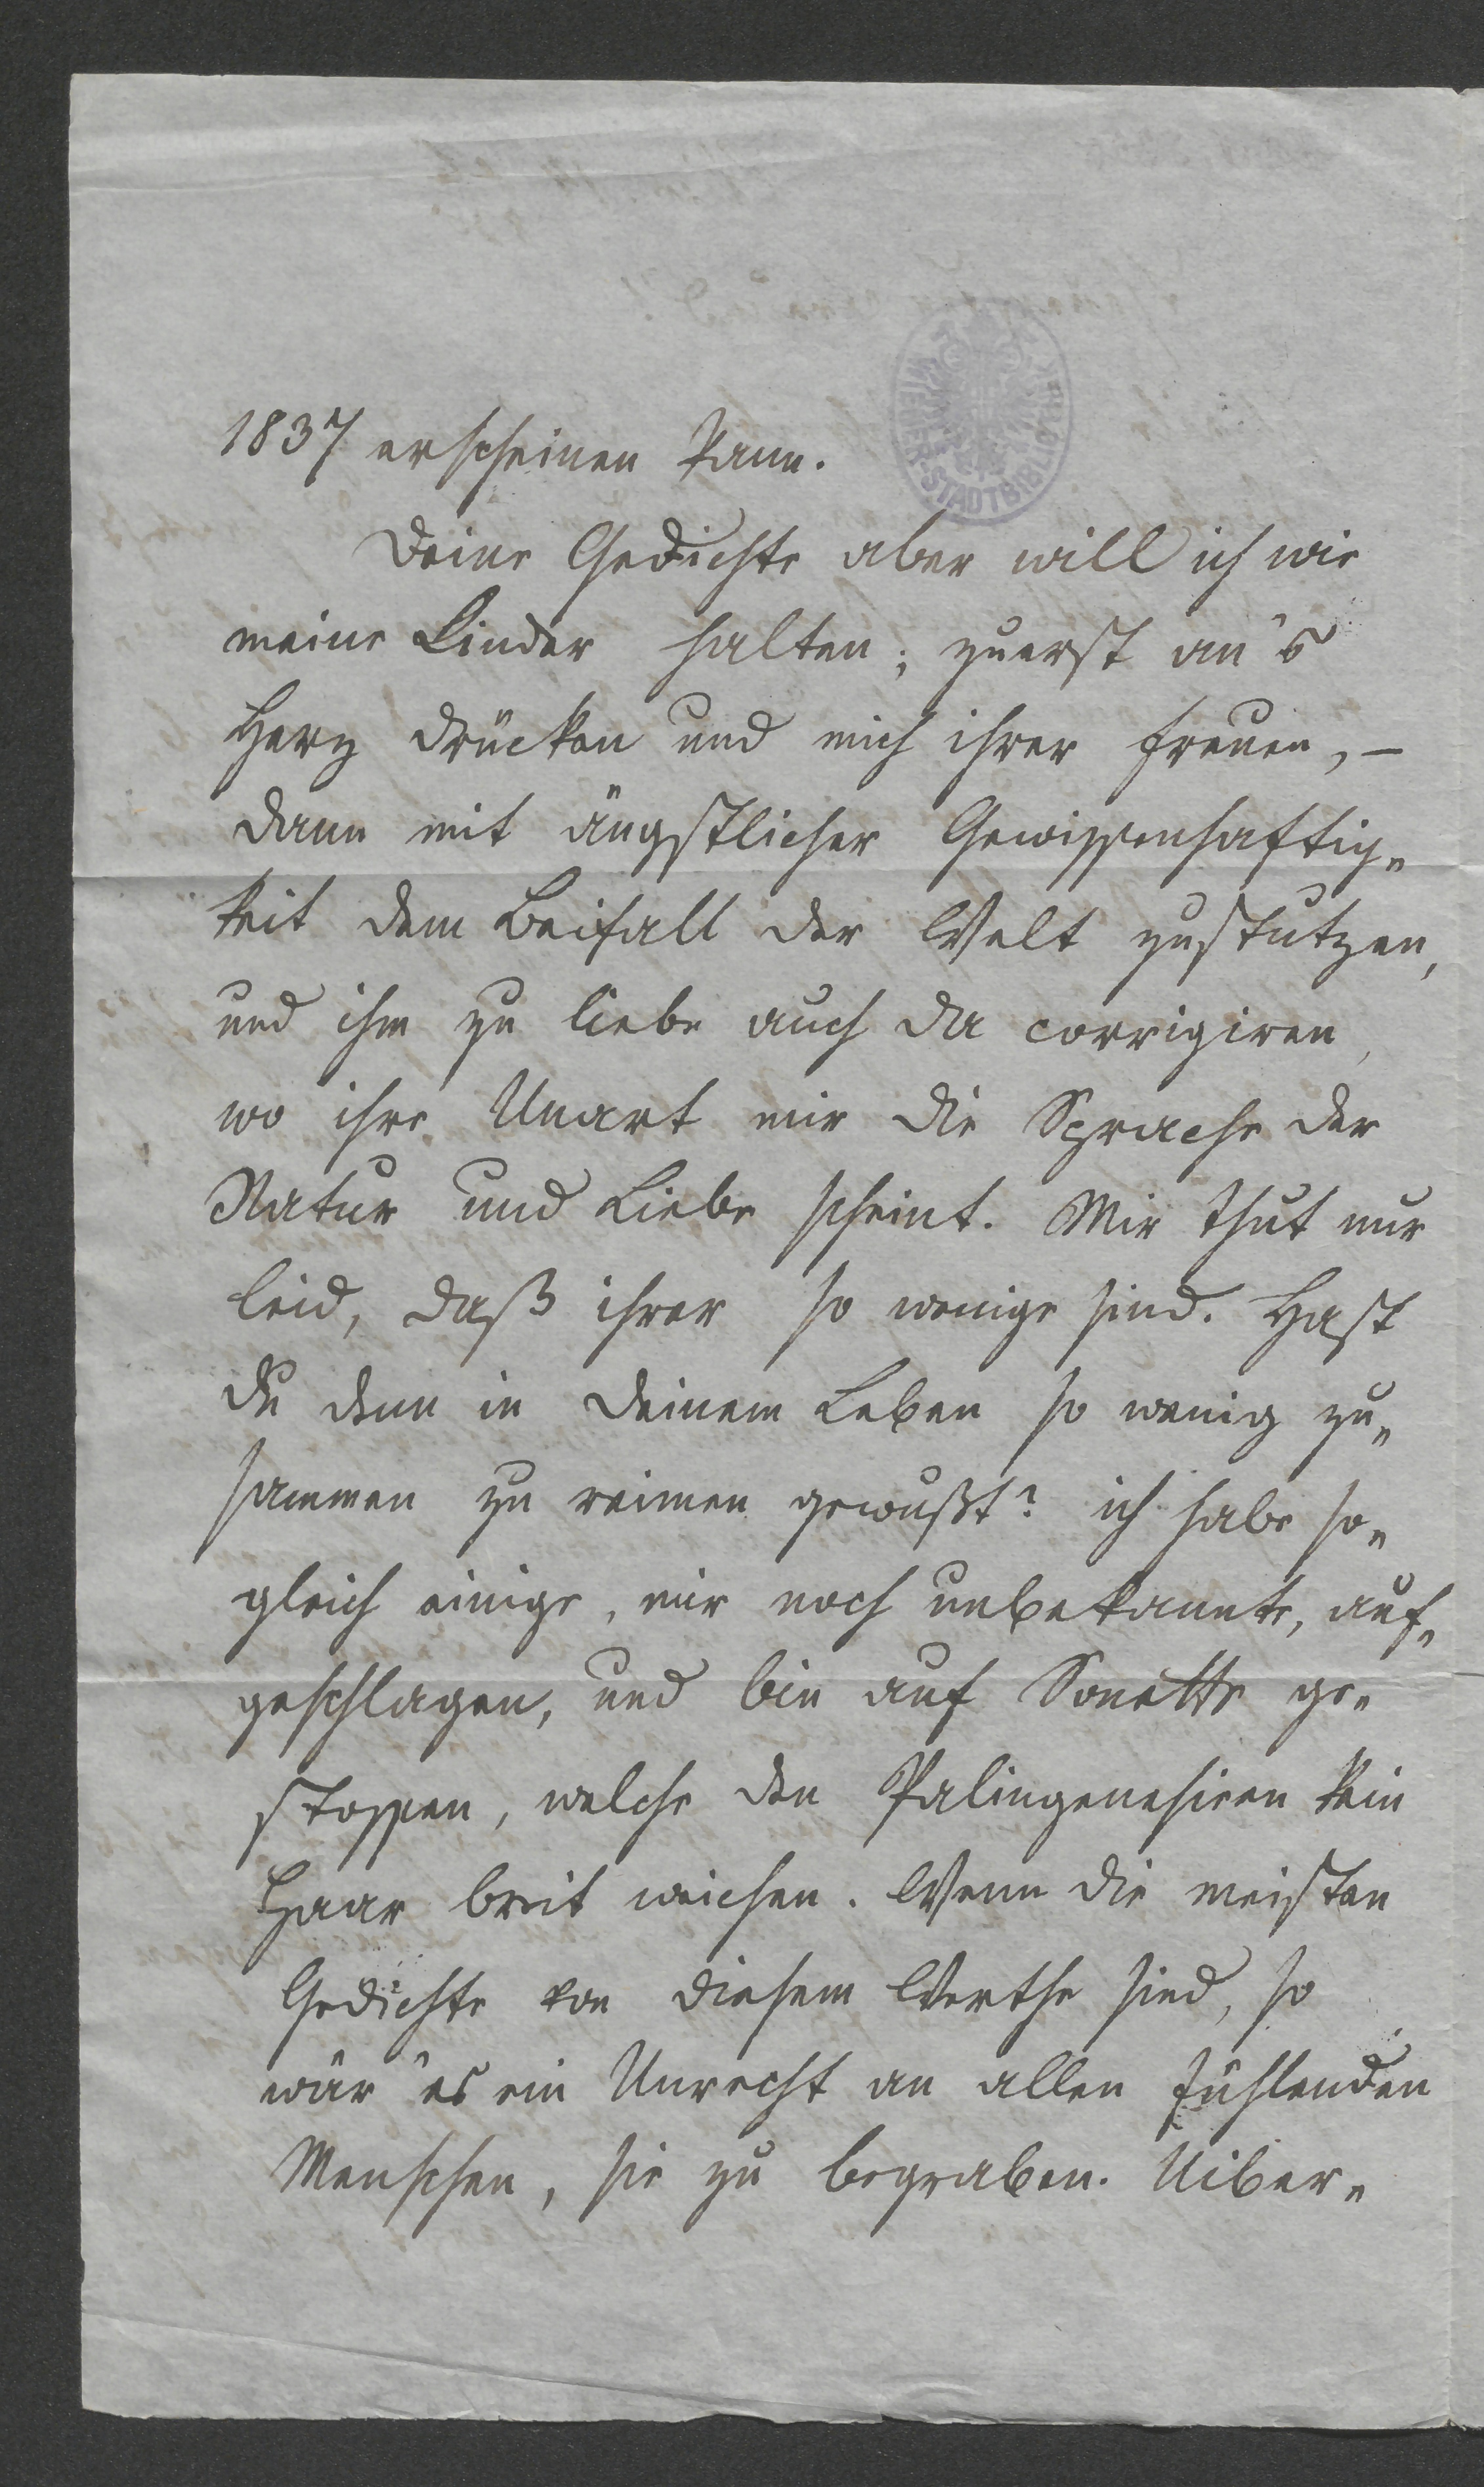 1837 erscheinen kann.
Deine Gedichte aber will ich wie
meine Kinder halten; zuerst an's
Herz drücken und mich ihrer freuen, –
dann mit ängstlicher Gewissenhaftig-
keit dem Beifall der Welt zustutzen,
und ihm zu liebe auch da corrigiren,
wo ihre Unart mir die Sprache der
Natur und Liebe scheint. Mir thut nur
leid, daß ihrer so wenige sind. Hast
du denn in deinem Leben so wenig zu-
sammen zu reimen gewußt? ich habe so-
gleich einige, mir noch unbekannte, auf-
geschlagen, und bin auf Sonette ge-
stossen, welche den Palingenesieen kein
Haar breit weichen. Wenn die meisten
Gedichte von diesem Werthe sind, so
wär' es ein Unrecht an allen fühlenden
Menschen, sie zu begraben. Uiber-
WIENER-STADTBIBLIOTHEK